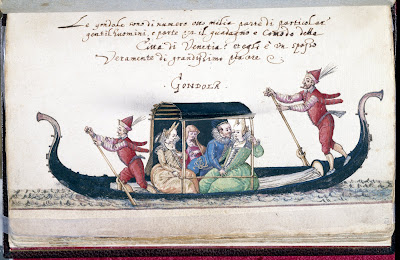 Le gondole sono di numero otto melia parte di particolar
gentilhuomini, e parte p̲ il guadagno e Comodo della
Citta di Venetia: et egli è un spasso
Veramente di grandissimo piacere
GONDOLA.